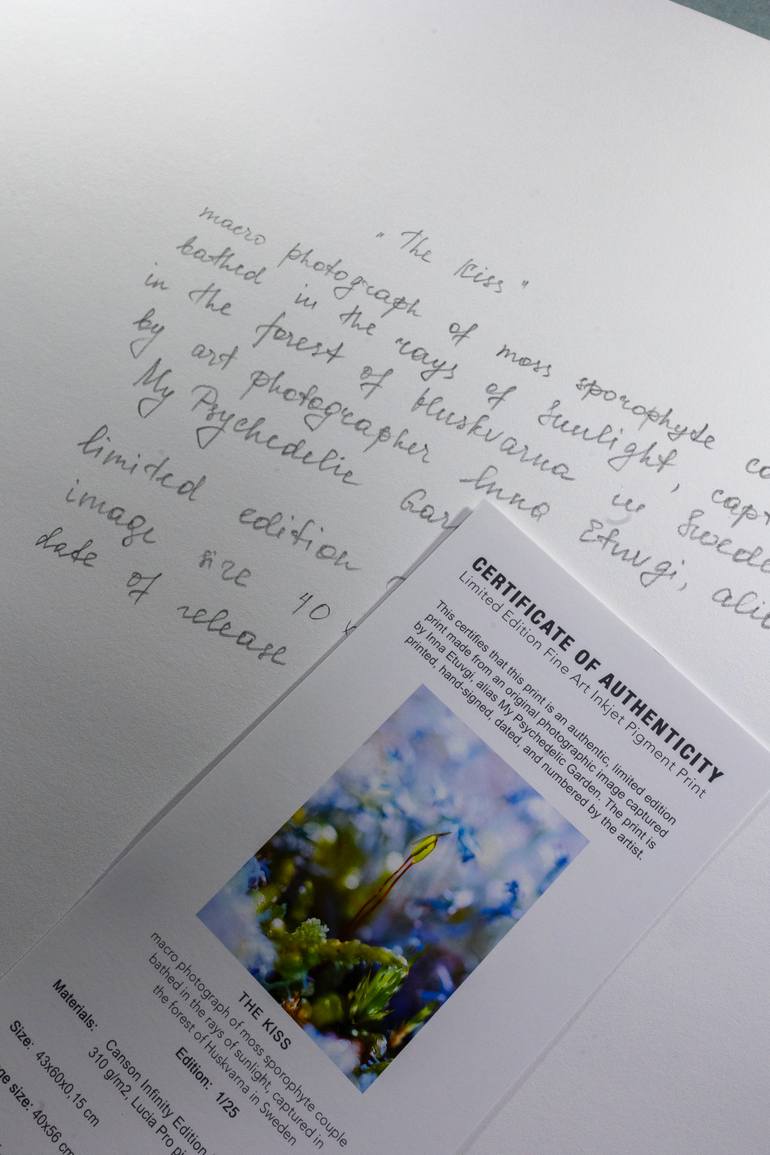 "The Kiss"
macro photograph of moss sporophyte
bathed in the rays of sunlight,
in the forest of Huskvarna in
by art photographer Inna Etuvgi,
My Psychedelic
limited edition
image size 40
date of release
CERTIFICATE OF AUTHENTICITY
Limited Edition Fine Art Inkjet Pigment Print
This certifies that this print is an authentic, limited edition
print made from an original photographic image captured
by Inna Etuvgi, alias My Psychedelic Garden. The print is
printed, hand-signed, dated, and numbered by the artist.
THE KISS
macro photograph of moss sporophyte couple
bathed in the rays of sunlight, captured in
the forest of Huskvarna in Sweden
Edition: 1/25
Materials: Canson Infinity Edition
310 g/m2, Lucia Pro
Size: 43x60x0,15 cm
size: 40x56 cm